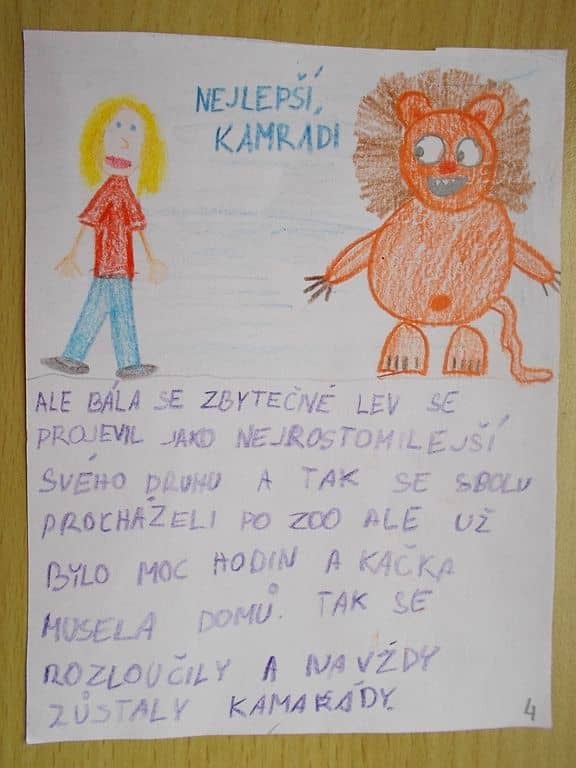 NEJLEPŠÍ,
KAMRADI
ALE BÁLA SE ZBYTEČNĚ LEV SE
PROJEVIL JAKO NEJROSTOMILEJŠÍ
SVÉHO DRUHU A TAK SE SBOLU
PROCHÁŽELI PO ZOO ALE UŽ
BYLO MOC HODIN A KAČKA
MUSELA DOMŮ. TAK SE
ROZLOUČILY A NAVŽDY
ZŮSTALY KAMARÁDY.
4